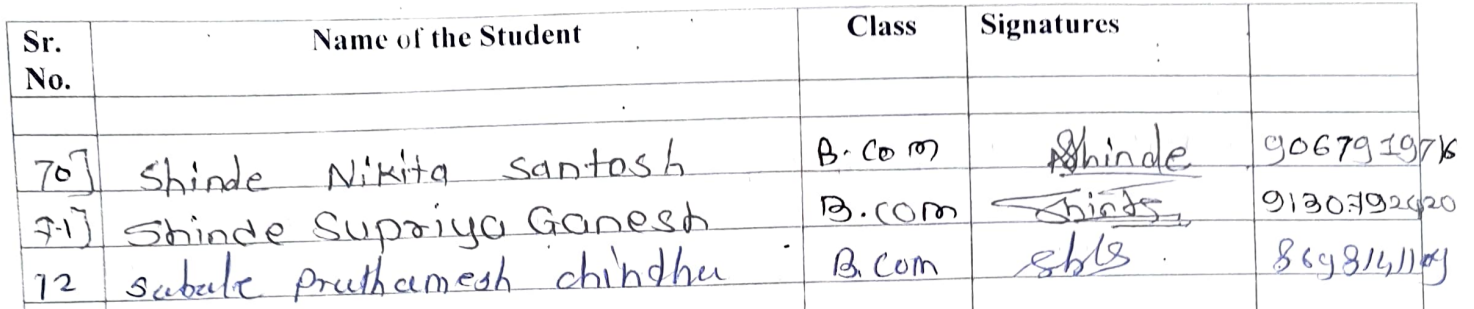 Sr. No. Name of the Student Class Signatures
70] Shinde Nikita Santosh B.Com Shinde 9067919716
71] Shinde Supriya Ganesh B.com
72 Sabale Pruthamesh chindhu B.Com